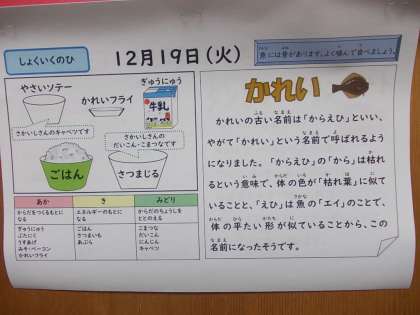 しょくいくのひ
12月19日(火)
魚には骨があります。よく噛んで食べましょう。
やさいソテー
かれいフライ
ぎゅうにゅう
牛乳
さかいしさんのキャベツです
さかいしさんの
だいこん・こまつなです
ごはん
さつまじる
あか
き
みどり
からだをつくるもとに
なる
エネルギーのもとに
なる
からだのちょうしを
ととのえる
ぎゅうにゅう
ぶたにく
うすあげ
みそ・ベーコン
かれいフライ
ごはん
さつまいも
あぶら
こまつな
だいこん
にんじん
キャベツ
かれい
かれいの古い名前は「からえひ」といい、
やがて「かれい」という名前で呼ばれるよう
になりました。「からえひ」の「から」は枯れ
るという意味で、体の色が「枯れ葉」に似て
いることと、「えひ」は魚の「エイ」のことで、
体の平たい形が似ていることから、この
名前になったそうです。